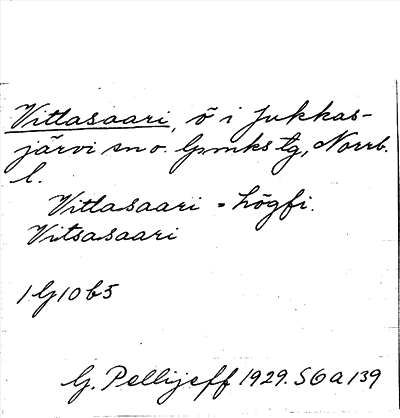 Vittasaari, ö i Jukkas-
järvi sn o. lpmks tg, Norrb.
l.
Vittasaari = högfi.
Vitsasaari
1 lg 10 b 5
G. Pellijeff 1929. S 6 a 139